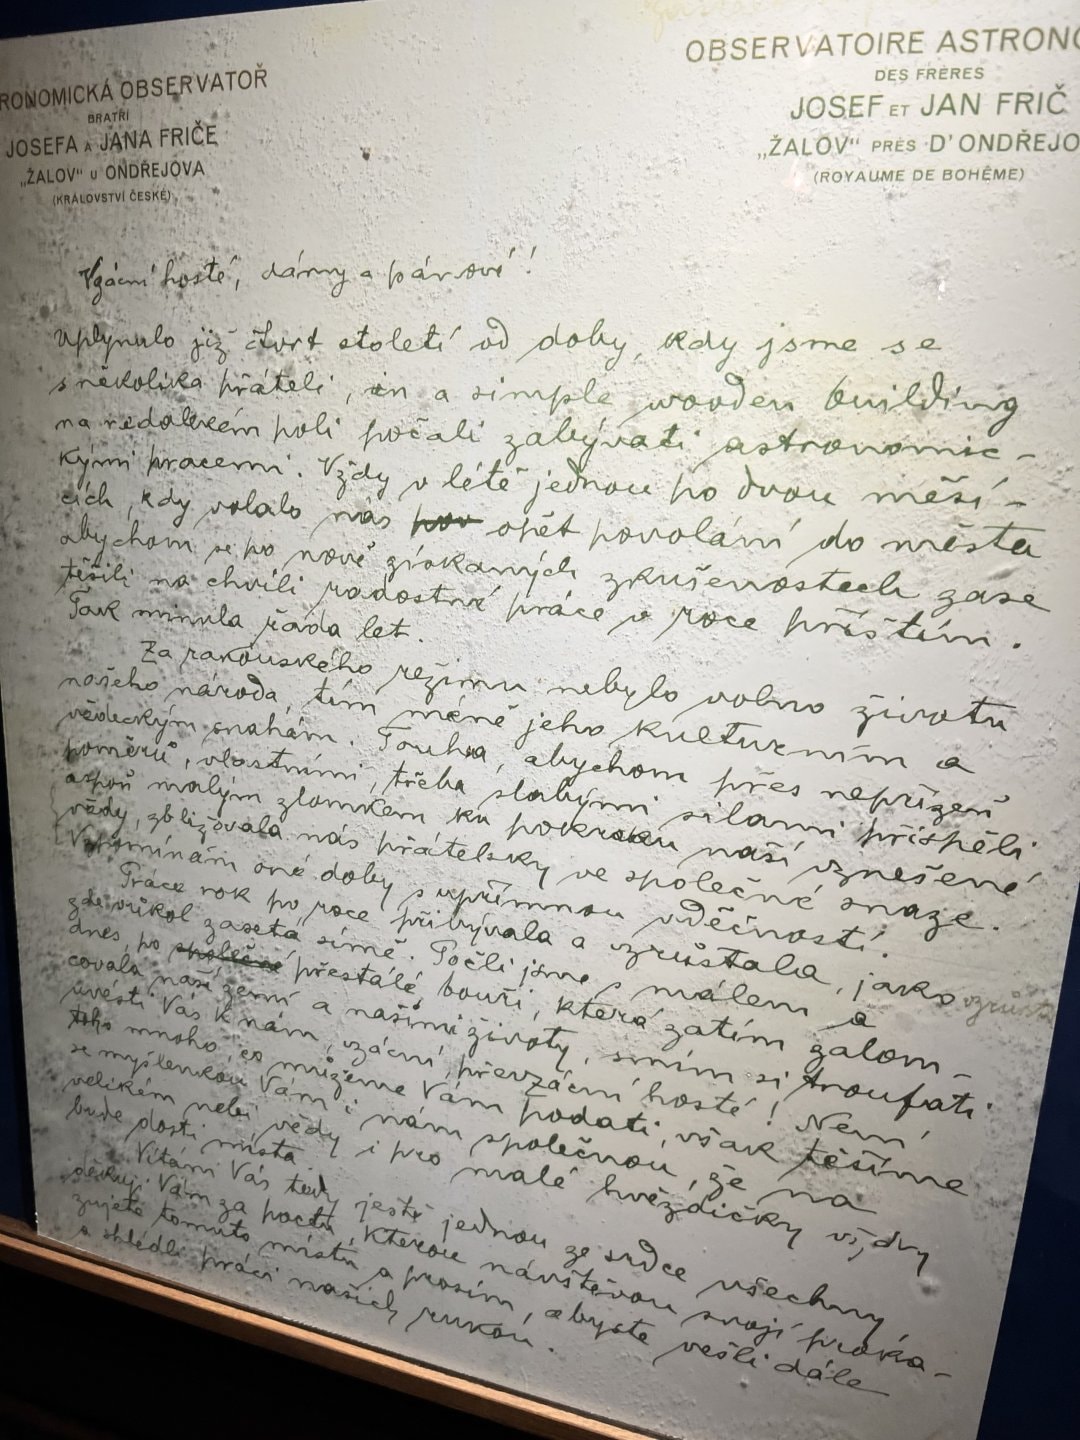 RONOMICKÁ OBSERVATOŘ
BRATŘÍ
JOSEFA A JANA FRIČE
„ŽALOV“ U ONDŘEJOVA
(KRÁLOVSTVÍ ČESKÉ)
OBSERVATOIRE ASTRONO
DES FRÈRES
JOSEF ET JAN FRIČ
„ŽALOV“ PRÈS D'ONDŘEJO
(ROYAUME DE BOHÊME)
Vzácní hosté, dámy a pánové!
Uplynulo již čtvrt století od doby, kdy jsme se
s několika přáteli, in a simple wooden building
na nedalekém poli počali zabývati astronomic-
kými pracemi. Vždy v létě jednou po dvou měsí-
cích, kdy volalo nás pov opět povolání do města
abychom se po nově získaných zkušenostech zase
těšili na chvíli radostné práce v roce příštím.
Tak minula řada let.
Za rakouského režimu nebylo volno životu
našeho národa, tím méně jeho kulturním a
vědeckým snahám. Touha, abychom přes nepřízeň
poměrů, vlastními, třeba slabými silami přispěli
aspoň malým zlomkem ku pokroku naší vznešené
vědy, sbližovala nás přátelsky ve společné snaze.
Vzpomínám oné doby s upřímnou vděčností.
Práce rok po roce přibývala a vzrůstala, jako vzrůstá
zde vůkol zasetá símě. Počli jsme s málem a
dnes, po společné přestálé bouři, která zatím zalom-
covala naší zemí a našimi životy, smím si troufati
uvésti Vás k nám, vzácní, převzácní hosté! Není
toho mnoho, co můžeme Vám podati, však těšíme
se myšlenkou Vám i nám společnou, že na
velikém nebi vědy i pro malé hvězdičky vždy
bude dosti místa.
Vítám Vás tedy ještě jednou ze srdce všechny
děkuji Vám za poctu, kterou návštěvou svojí proka-
zujete tomuto místu a prosím, abyste vešli dále
a shlédli práci našich rukou.